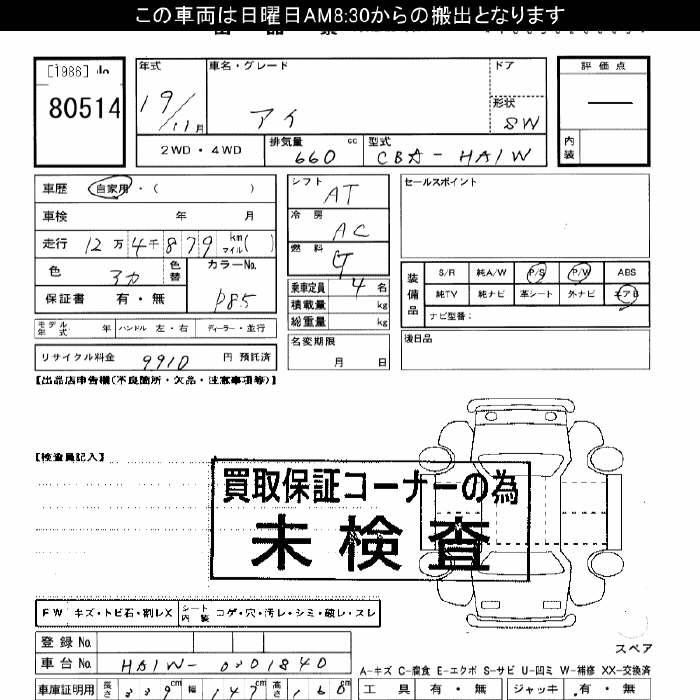 この車両は日曜日AM8:30からの搬出となります
[1986]
80514
年式
19/11月
車名・グレード
アイ
ドア
形状
SW
評価点
—
内装
2WD・4WD
排気量
660 cc
型式
CBA-HA1W
車歴 自家用・( )
車検 年 月
走行 12万4千879 km マイル( )
色 アカ
色替
カラーNo.
P85
保証書 有・無
モデル年式 年
ハンドル 左・右
ディーラー・並行
リサイクル料金 9910 円 預託済
シフト
AT
冷房
AC
燃料
G
乗車定員 4 名
積載量 kg
総重量 kg
名変期限
月 日
セールスポイント
装備品
S/R 純A/W P/S P/W ABS
純TV 純ナビ 革シート 外ナビ エアB
ナビ型番:
後日品
【出品店申告欄(不良箇所・欠品・注意事項等)】
【検査員記入】
買取保証コーナーの為
未検査
FW キズ・トビ石・割レX
シート内装 コゲ・穴・汚レ・シミ・破レ・スレ
登録No.
車台No. HA1W-0301840
スペア
A-キズ C-腐食 E-エクボ S-サビ U-凹ミ W-補修 XX-交換済
車庫証明用 長さ 339cm 幅 147cm 高さ 160cm
工具 有・無
ジャッキ 有・無